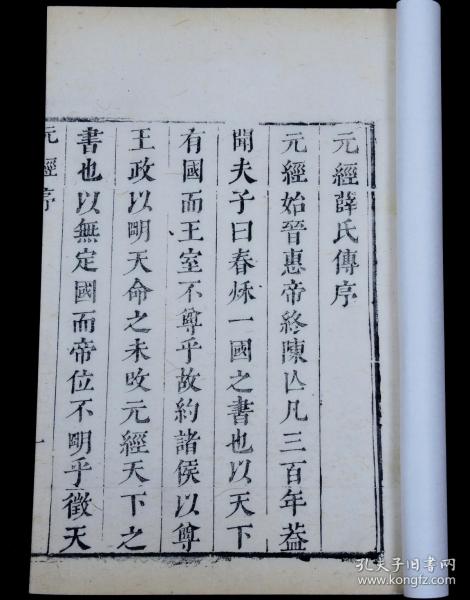 元經薛氏傳序
元經始晉惠帝終陳亾凡三百年葢
聞夫子曰春秌一國之書也以天下
有國而王室不尊乎故約諸侯以尊
王政以明天命之未改元經天下之
書也以無定國而帝位不明乎徵天
元經序
一
孔夫子旧书网
www.kongfz.com